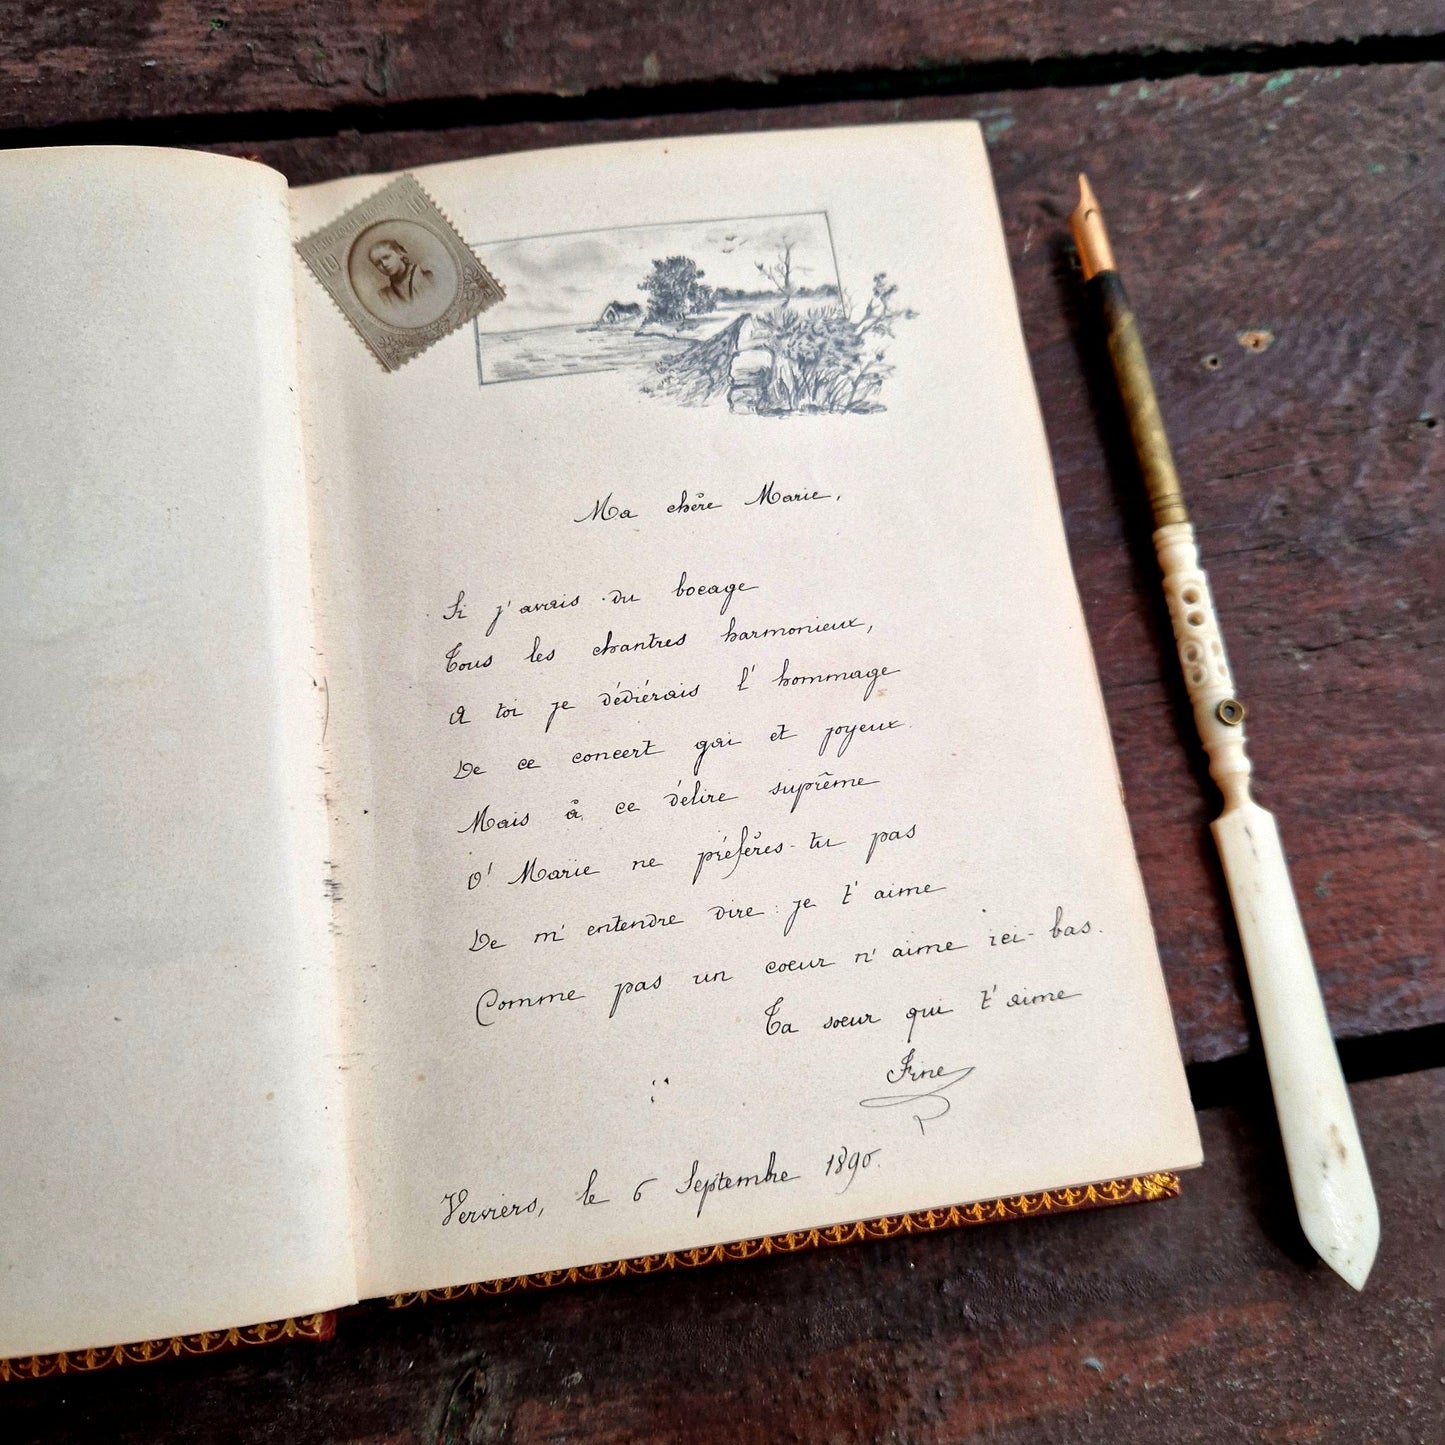 10 10
Ma chère Marie,
Si j'avais du bocage
Tous les chantres harmonieux,
A toi je dédiérais l'hommage
De ce concert gai et joyeux.
Mais à ce délire suprême
O' Marie ne préfères-tu pas
De m'entendre dire : je t'aime
Comme pas un coeur n'aime ici-bas.
Ta soeur qui t'aime
Fine
Verviers, le 6 Septembre 1890.